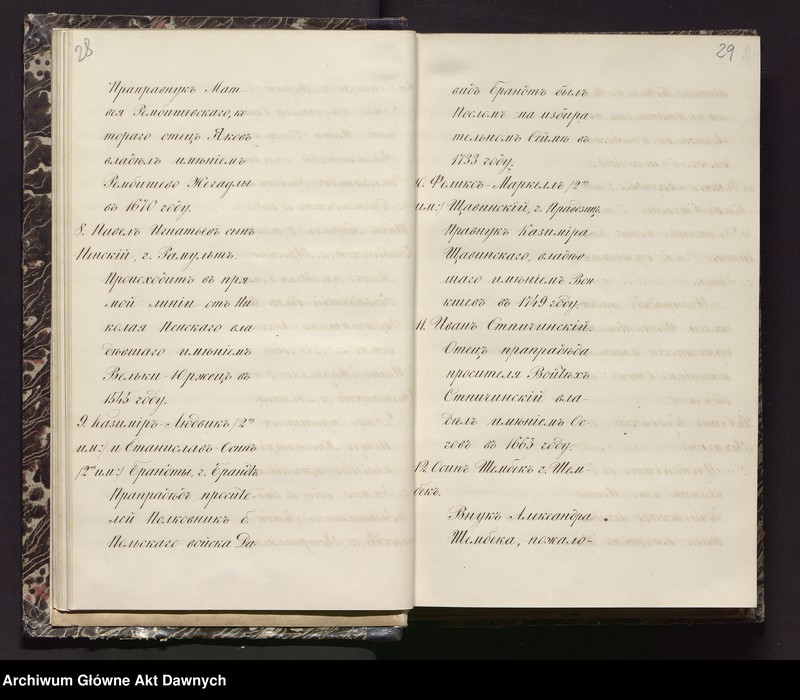 28
Праправнукъ Мат-
вея Рембишевскаго, ко
тораго отецъ Яковъ
владѣлъ имѣніемъ
Рембишево Жегадлы
въ 1670 году.
8. Павелъ Игнатьевъ сынъ
Пенскій, г. Рамультъ.
Происходитъ въ пря-
мой линіи отъ Ни-
колая Пенскаго вла
дѣвшаго имѣніемъ
Вельки-Юржецъ въ
1545 году.
9. Казиміръ-Людвикъ /2хъ
им:/ и Станиславъ-Осипъ
/2хъ им:/ Брандты, г. Брандтъ
Прапрадѣдъ просите-
лей Полковникъ б.
Польскаго войска Да
29
видъ Брандтъ былъ
Посломъ на избира
тельномъ Сеймѣ въ
1733 году.
10. Феликсъ-Маркеллъ /2хъ
им:/ Щавинскій, г. Правдзицъ.
Правнукъ Казиміра
Щавинскаго, владѣв
шаго имѣніемъ Вон
киевъ въ 1749 году.
11. Иванъ Стпичинскій.
Отецъ прапрадѣда
просителя Войтѣхъ
Стпичинскій вла-
дѣлъ имѣніемъ Ос-
говъ въ 1663 году.
12. Осипъ Шембекъ г. Шем-
бекъ.
Внукъ Александра
Шембека, пожало-
Archiwum Główne Akt Dawnych